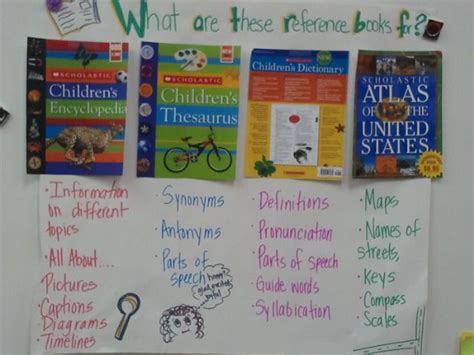 What are these reference books for?
SCHOLASTIC
Children's
Encyclopedia
SCHOLASTIC
Children's
Thesaurus
SCHOLASTIC
Children's Dictionary
NEW
SCHOLASTIC
ATLAS
OF THE
UNITED
STATES
$9.95
• Information
on different
topics
• All About....
• Pictures
• Captions
• Diagrams
• Timelines
• Synonyms
• Antonyms
• Parts of
speech
happy
glad
joyful
• Definitions
• Pronunciation
• Parts of speech
• Guide words
• Syllabication
• Maps
• Names of
streets,
• Keys
• Compass
• Scales